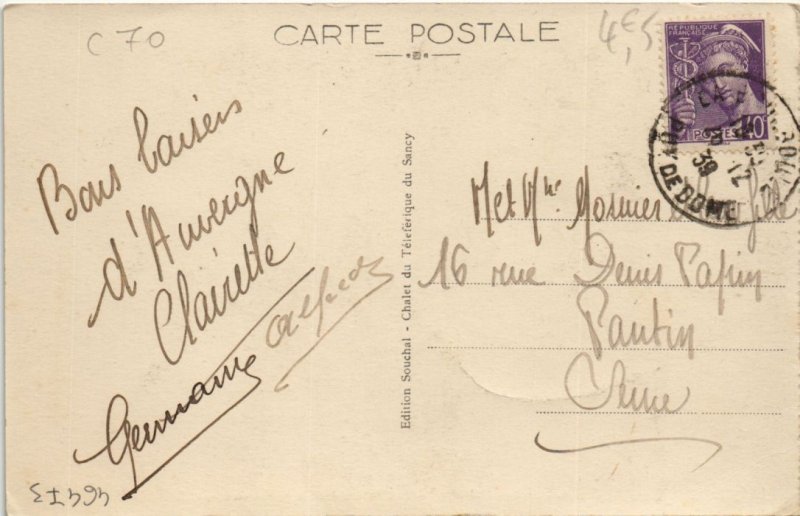 C 70
CARTE POSTALE
4€,5
REPUBLIQUE
FRANÇAISE
POSTES
40c
DE DOME
39
12
Bons baisers
d'Auvergne
Clairette
Germaine
Alfred
Edition Souchal - Chalet du Téléférique du Sancy
M et Mme
16 rue Denis Papin
Pantin
Seine